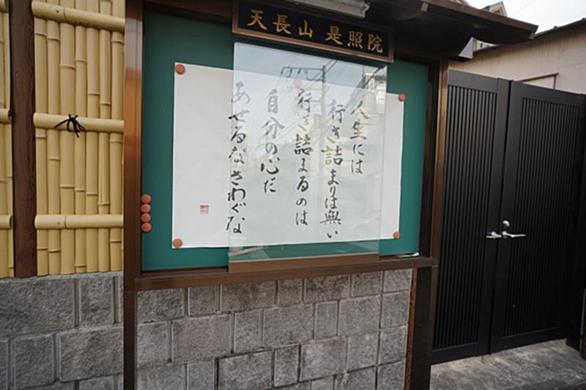 天長山 是照院
人生には
行き詰まりは無い
行き詰まるのは
自分の心だ
あせるなさわぐな